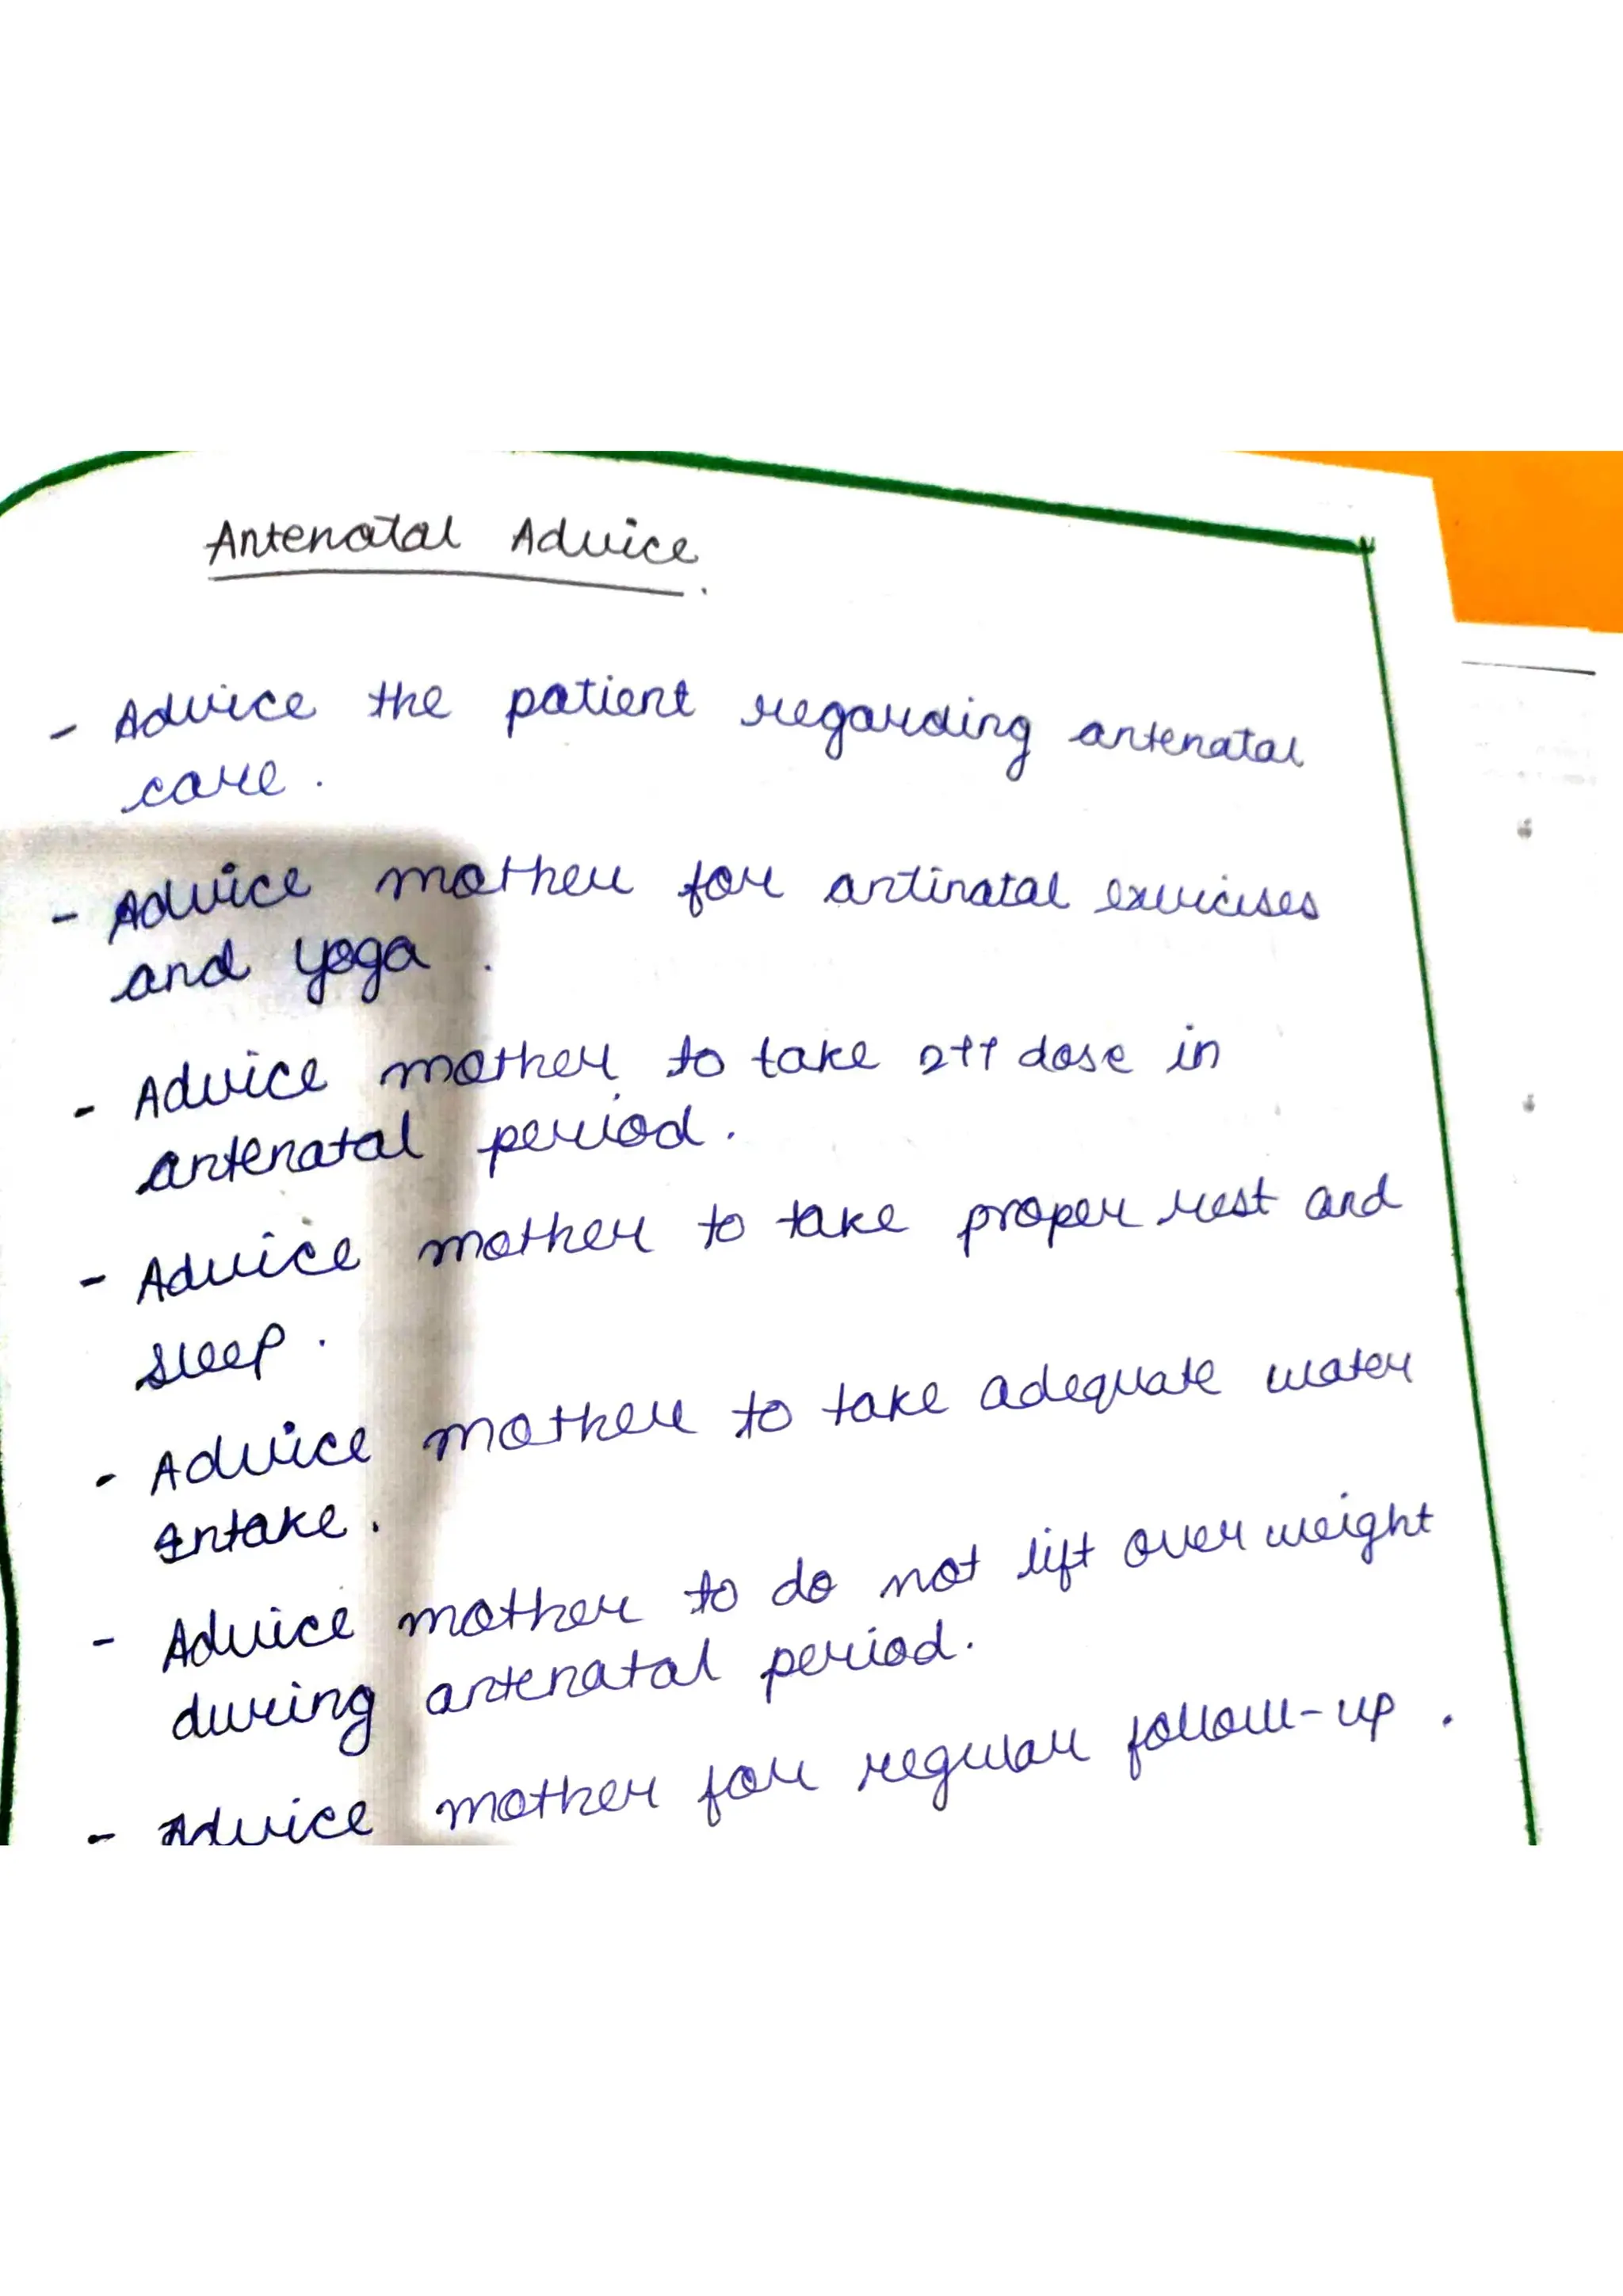 Antenatal Advice.
- Advice the patient regarding antenatal
care.
- Advice mother for antinatal exercises
and yoga.
- Advice mother to take 2tt dose in
antenatal period.
- Advice mother to take proper rest and
sleep.
- Advice mother to take adequate water
Intake.
- Advice mother to do not lift over weight
during antenatal period.
- Advice mother for regular follow-up.